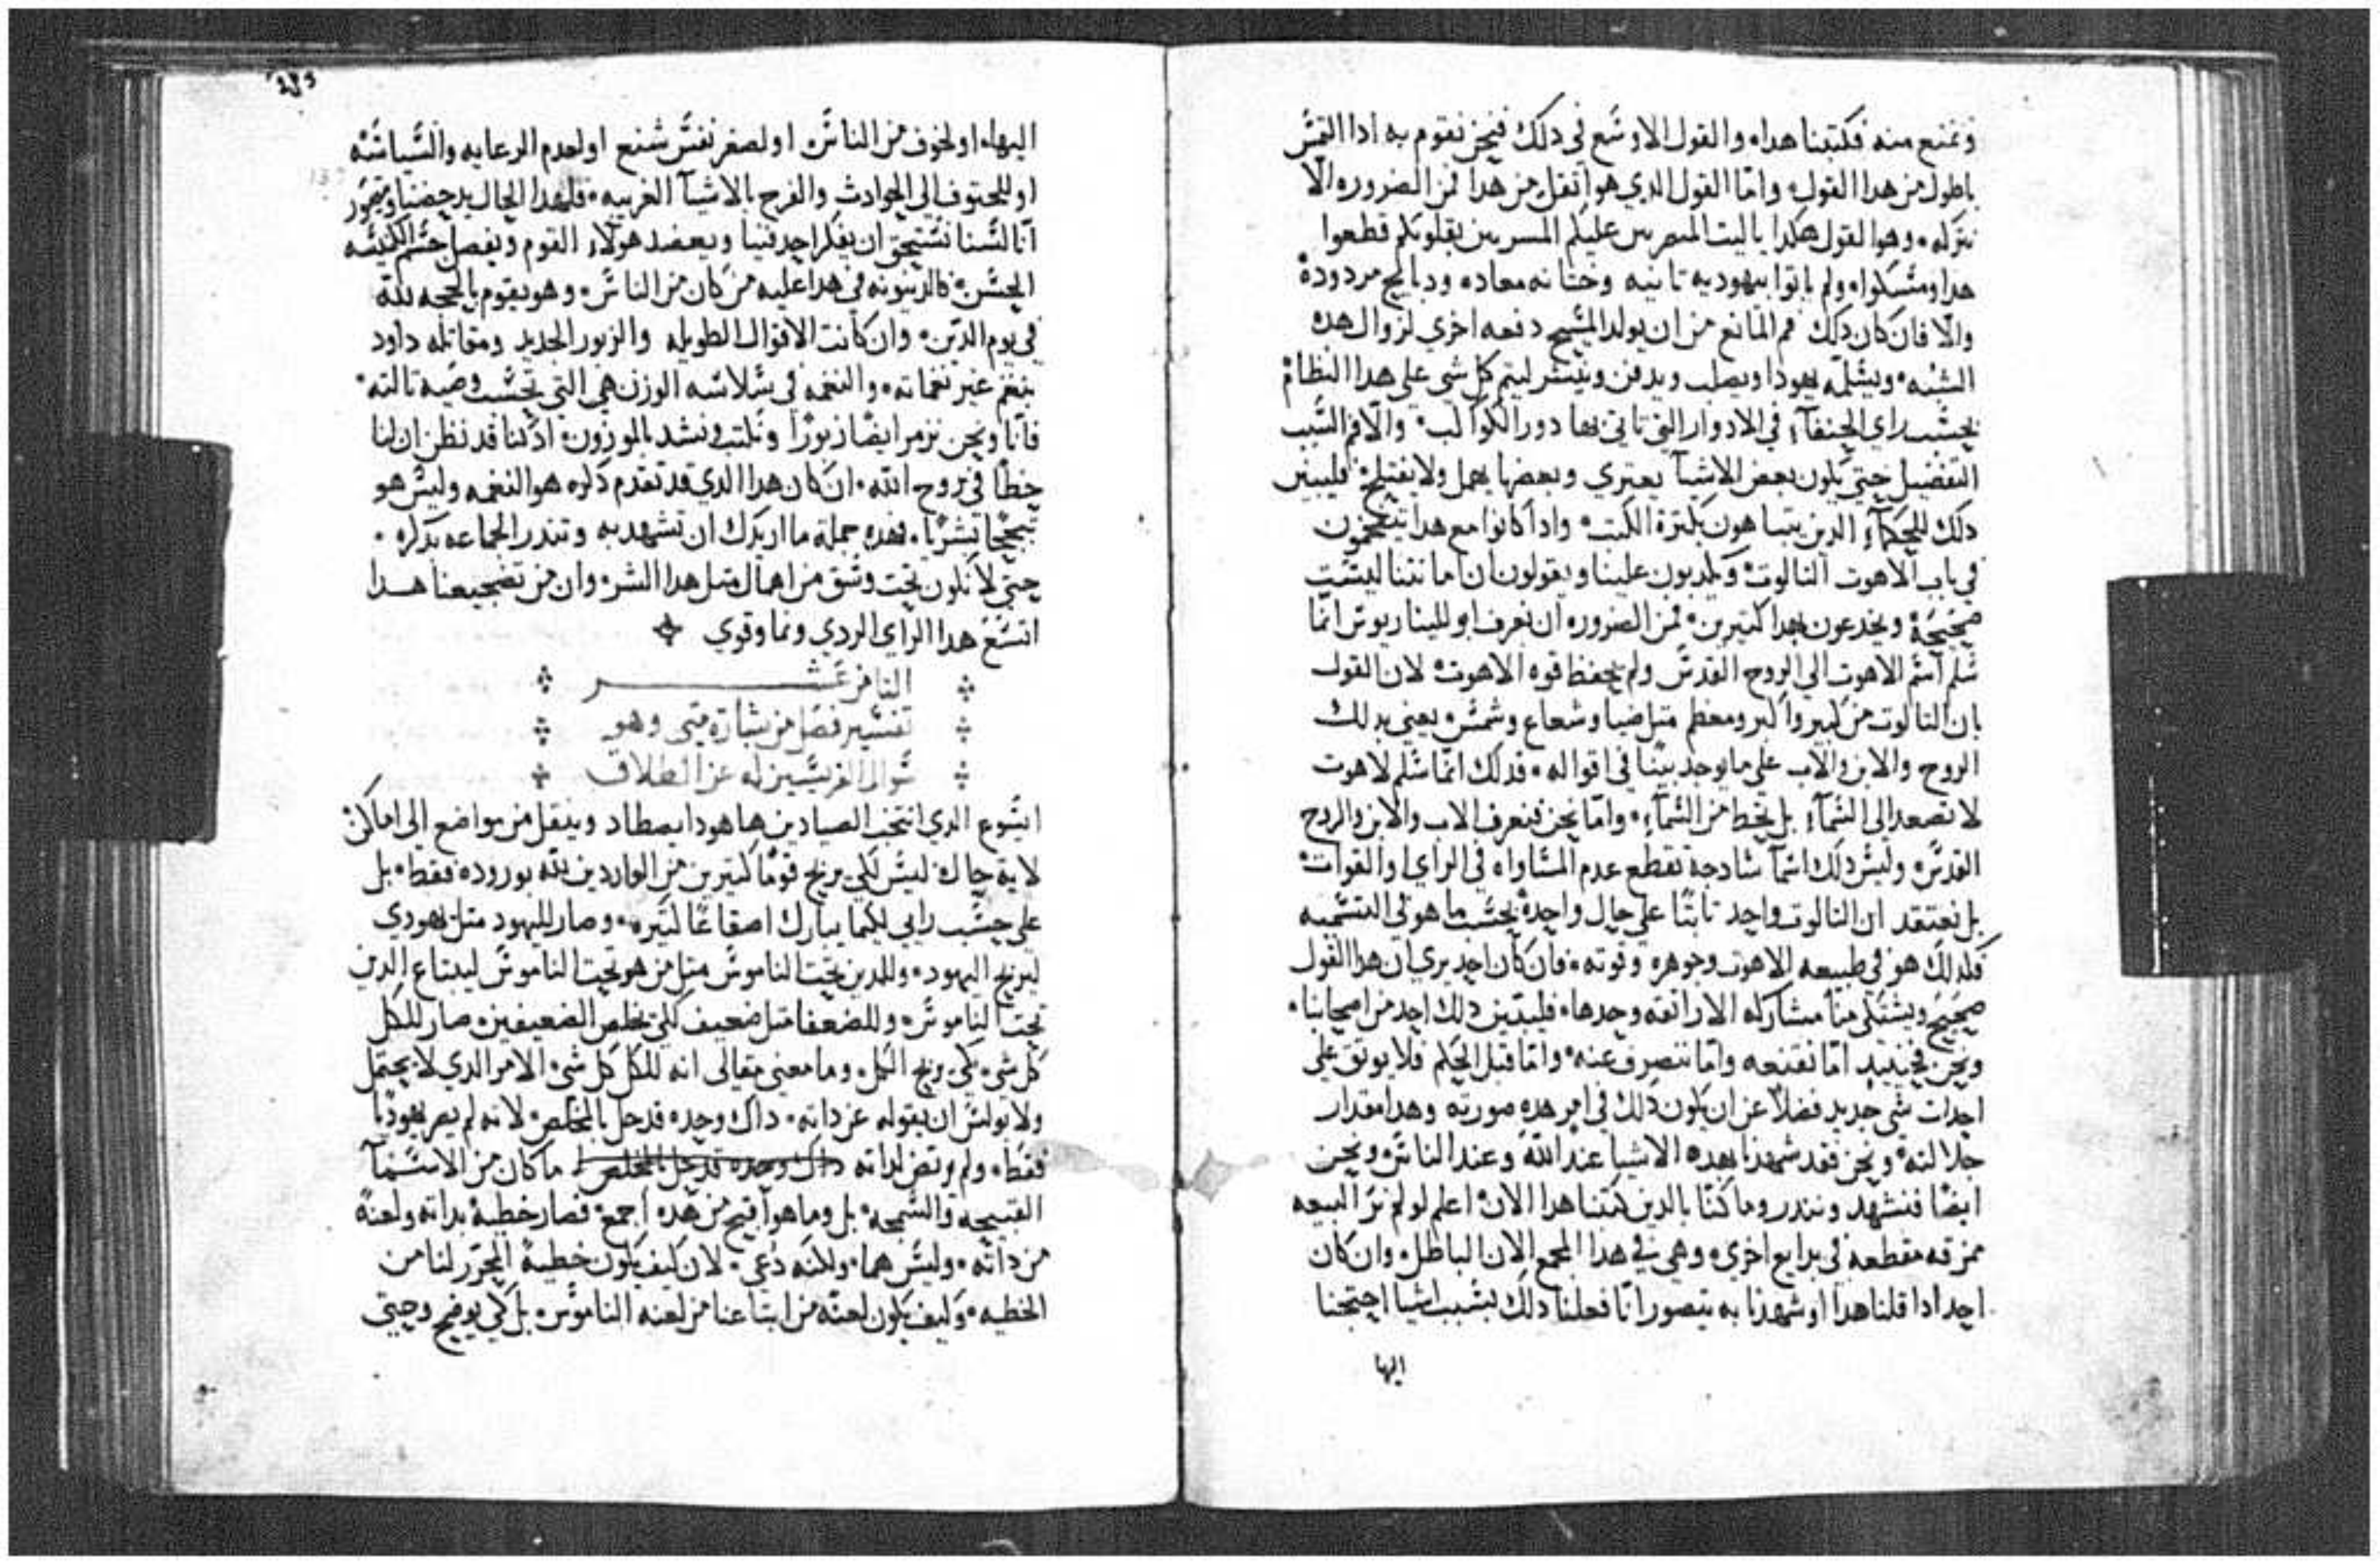 ونمنع منه فكتبنا هدا. والقول الاوسع في دلك فنحن نقوم به ادا التمس
باطول من هدا القول. وامّا القول الدي هو اثقل من هدا فمن الضروره الّا
نتركه. وهو القول هكدا ياليت عليكم بقلوبكم قطعوا
هدا ولم ياتوا بيهوديه تانيه وختانه معاده ودبايح مردودة
والّا فان كان دلك فم المانع من ان يولد المسيح دفعه اخري لزوال هده
الشبه. ويسلّمه يهودا ويصلب ويدفن وينتشر ليتم كل شي علي هدا النظام
بحسب راي الحنفآء في الادوار التي تاتي بها دور الكواكب. والّا فم السّبب
التفضيل حتي يكون بعض الاشيآ يعتري وبعضها يهمل ولا يفتلح. فليبين
دلك للحكمآء الدين يتباهون بكترة الكتب. وادا كانوا مع هدا
في باب الاهوت التالوت ويكدبون علينا ويقولون ان امانتنا ليست
صحيحة ويخدعون بهدا كتيرين. فمن الضروره ان نعرف ابولليناريوس انّما
سلم اسم الاهوت الي الروح القدس ولم يحفظ قوه الاهوت. لان القول
بان التالوت من كبير واكبر ومعظم متل ضيا وشعاع وشمس. يعني بدلك
الروح والابن والاب علي ما يوجد بينًا في اقواله. فدلك انّما سلم لاهوت
لا تصعد الي السّمآء بل تخط من السّمآء. وامّا نحن فنعرف الاب والابن والروح
القدس. وليس دلك اسمآ سادجة تقطع عدم المساواه في الراي او القوات
بل نعتقد ان التالوت واحد تابتًا علي حال واحدة بحسب ما هو في التسميه
فكدلك هو في طبيعه الاهوت وجوهره وقوته. فان كان احد يري ان هدا القول
صحيح ويشتكي منا مشاركه الاراتقه وحدها. فليبين دلك احد من اصحابنا.
ونحن فحينيد امّا نقنعه وامّا ننصرف عنه. وامّا قبل الحكم فلا يوتق علي
احدات شي جديد فضلاً عن ان يكون دلك في امر هده صورته وهدا مقدار
جلالته. ونحن فقد شهدنا بهده الاشيا عند اللّه وعند الناس. ونحن
ايضًا فنشهد وننذر وما كنّا بالدين كتبنا هدا الان. اعلم لو لم نر البيعه
ممزقه مقطعه في بدايع اخري. وهي في هدا المجمع الان الباطل. وان كان
احد ادا قلنا هدا او شهدنا به يتصور انّا فعلنا دلك بسبب اشيا احتجنا
اليها
اليها. او لخوف من الناس. او لصغر نفس شنع او لعدم الرعايه والسّياسه
او للحتوف الي الحوادث والفرح بالاشيآ الغريبه. فلهدا الحال
انّا لسنا نستحق ان يفكر احد فينا ويعضد هولاء القوم ويفصل جسم الكنيسه
الحسن. فالدينونه في هدا عليه من كان من الناس. وهو يقوم بالحجه للّه
في يوم الدّين. وان كانت الاقوال الطويله والزبور الجديد ومقاتله داود
بنغم غير نغماته. والنغمه في سلاسه الوزن هي التي تحسب وصيه تالته.
فانّا ونحن نزمر ايضًا زبورًا ونكتب وننشد بالموزون. ادكنا قد نظن ان لنا
حظًا في روح اللّه. ان كان هدا الدي قد تقدم دكره هو النغمه وليس هو
تبجحًا بشريًا. فهده جملة ما اريدك ان تشهد به وتندر الجماعه بدكره.
حتي لا نكون تحت وسق من اهمال متل هدا الشر. وان من تضجيعنا هـدا
اتسع هدا الراي الردي ونما وقوي
التامن عشــر
تفسير فصل من بشارة متي وهو
سوال الفريسيين له عن الطلاق
ايسوع الدي انتخب الصيادين ها هودا يصطاد وينقل من مواضع الي اماكن
لاية حال. ليس لكي يربح قومًا كتيرين من الواردين للّه بوروده فقط. بل
علي حسب رايي لكيما يبارك اصقاعًا كتيره. وصار لليهود متل يهودي
ليربح اليهود. وللدين تحت الناموس متل من هو تحت الناموس ليبتاع الدين
تحت الناموس. وللضعفا متل ضعيف لكي يخلص الضعيفين. صار للكل
كل شي. كي يربح الكل. وما معني مقالي انه للكل كل شي. الامر الدي لا يحتمل
ولا بولس ان يقوله عن داته. داك وحده قد حل بالمخلص. لانه لم يصر يهوديًا
فقط. ولم يرتض لداته داك وحده قد حل بالمخلص ما كان من الاسمآ
القبيحة والسّمجه. بل وما هو اقبح من هده اجمع. فصار خطيةً بداته ولعنةً
من داته. وليس هما. ولكنه دُعي. لان كيف يكون خطيةً المحرّر لنا من
الخطيه. وكيف يكون لعنه من ابتاعنا من لعنه الناموس. بل كي يوضح وحيتي